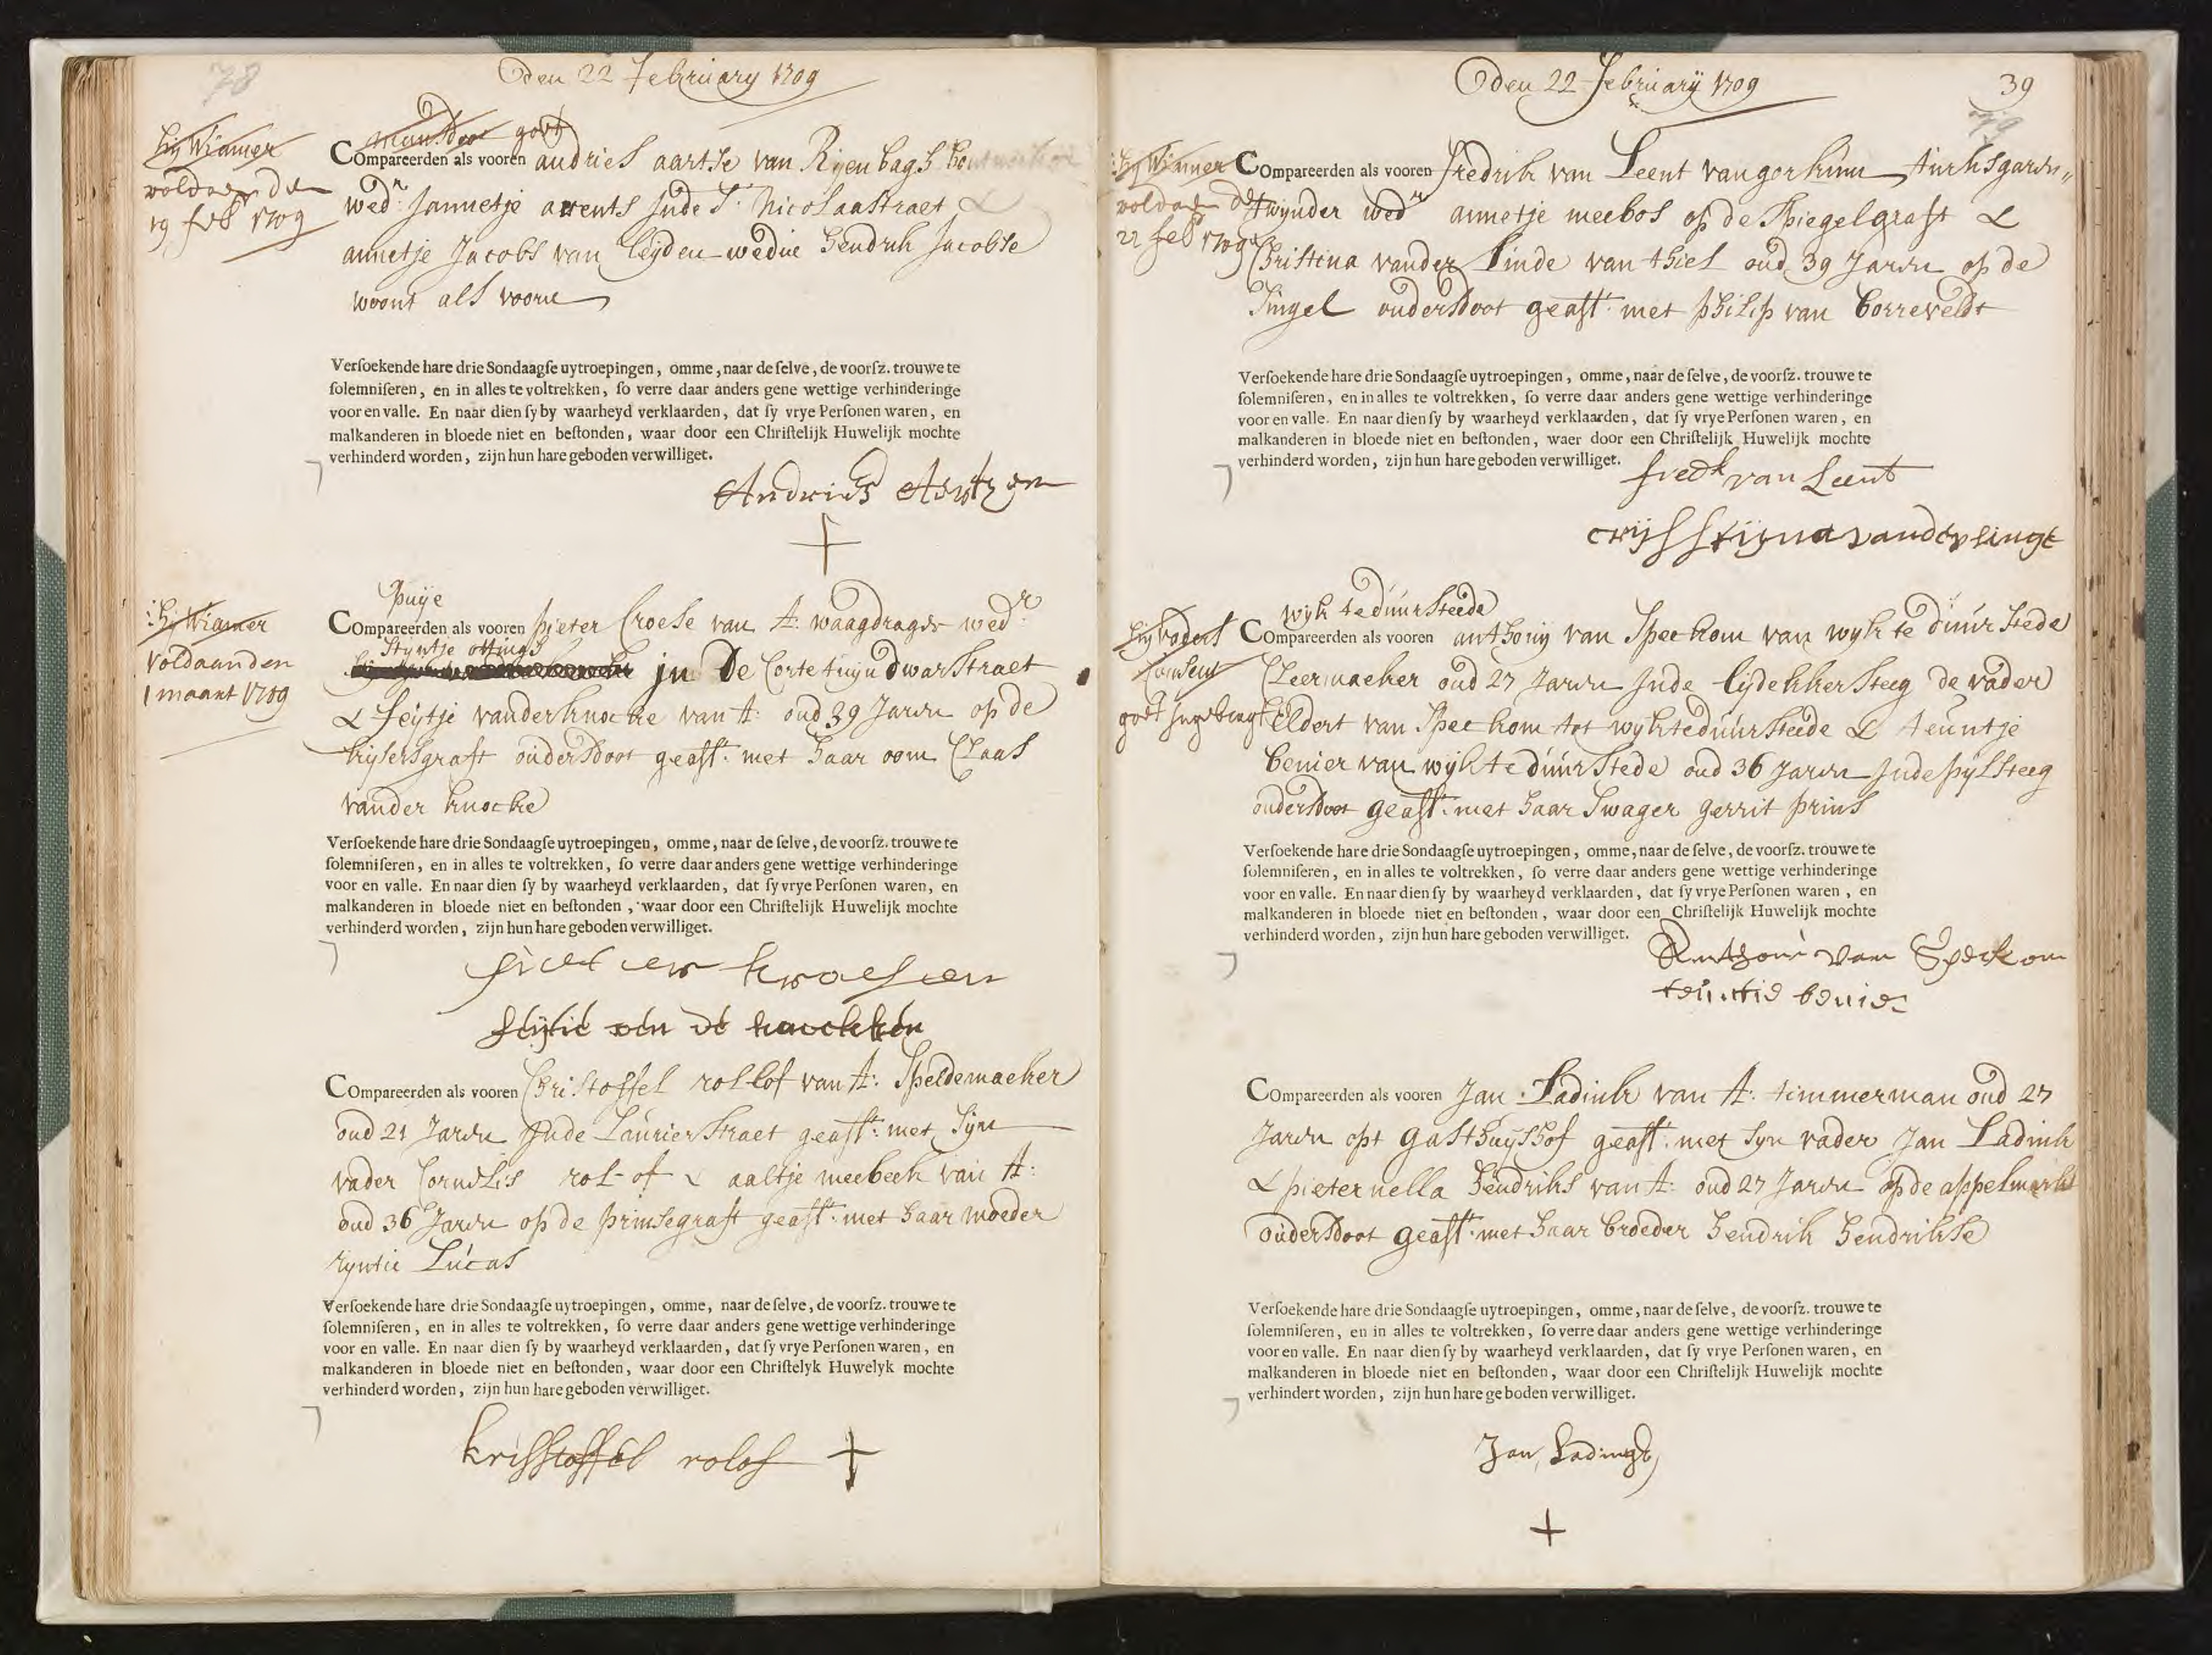 78
den 22 February 1709
hy Wiamer
voldaen den
19 feb 1709
goet
Compareerden als vooren andries aartse van Ryenbagh
wedr: Jannetje arents Inde St. Nicolaastraet &
annetje Jacobs van leyden wedue hendrik Jacobse
woont als voorn
Versoekende hare drie Sondaagse uytroepingen, omme, naar de selve, de voorsz. trouwe te
solemniseren, en in alles te voltrekken, so verre daar anders gene wettige verhinderinge
voor en valle. En naar dien sy by waarheyd verklaarden, dat sy vrye Personen waren, en
malkanderen in bloede niet en bestonden, waar door een Christelijk Huwelijk mochte
verhinderd worden, zijn hun hare geboden verwilliget.
Andries Aertzen
+
hy Wiamer
voldaan den
1 maart 1709
puije
Compareerden als vooren pieter Croese van A: waagdrager wedr:
Styntje ottings
in De Corte tuyn dwarstraet
& feijtje vander knocke van A: oud 39 Jaren op de
kysersgraft ouders doot geast: met haar oom Claas
vander knocke
Versoekende hare drie Sondaagse uytroepingen, omme, naar de selve, de voorsz. trouwe te
solemniseren, en in alles te voltrekken, so verre daar anders gene wettige verhinderinge
voor en valle. En naar dien sy by waarheyd verklaarden, dat sy vrye Personen waren, en
malkanderen in bloede niet en bestonden, waar door een Christelijk Huwelijk mochte
verhinderd worden, zijn hun hare geboden verwilliget.
pieter kroesen
feijtie van de knockken
Compareerden als vooren Christoffel rollof van A: Speldemaeker
oud 21 Jaren Inde Laurierstraet geast: met syn
vader Cornelis rol-of & aaltje meebeek van A:
oud 36 Jaren op de prinsegraft geast: met haar moeder
ryntie Lucas
Versoekende hare drie Sondaagse uytroepingen, omme, naar de selve, de voorsz. trouwe te
solemniseren, en in alles te voltrekken, so verre daar anders gene wettige verhinderinge
voor en valle. En naar dien sy by waarheyd verklaarden, dat sy vrye Personen waren, en
malkanderen in bloede niet en bestonden, waar door een Christelyk Huwelyk mochte
verhinderd worden, zijn hun hare geboden verwilliget.
krisstoffel rolof +
den 22 february 1709
39
hy Wiamer
voldaen den
22 feb 1709
Compareerden als vooren fredrik van Leent van gorkum turksgaren
twynder wedr annetje meebos op de Spiegelgraft &
Christina vander Linde van thiel oud 39 Jaren op de
Singel ouders doot geast: met philip van Correveldt
Versoekende hare drie Sondaagse uytroepingen, omme, naar de selve, de voorsz. trouwe te
solemniseren, en in alles te voltrekken, so verre daar anders gene wettige verhinderinge
voor en valle. En naar dien sy by waarheyd verklaarden, dat sy vrye Personen waren, en
malkanderen in bloede niet en bestonden, waer door een Christelijk Huwelijk mochte
verhinderd worden, zijn hun hare geboden verwilliget.
fredk van Leent
crijsstijna vander linge
hy vaders
Consent
goet ingebragt
wyk te duurstede
Compareerden als vooren anthony van Speckom van wyk te duurstede
Cleermaeker oud 27 Jaren Inde lydekkersteeg de vader
Eldert van Speckom tot wyk te duurstede & teuntje
benier van wyk te duurstede oud 36 Jaren Inde pylsteeg
ouders doot geast: met haar Swager gerrit prins
Versoekende hare drie Sondaagse uytroepingen, omme, naar de selve, de voorsz. trouwe te
solemniseren, en in alles te voltrekken, so verre daar anders gene wettige verhinderinge
voor en valle. En naar dien sy by waarheyd verklaarden, dat sy vrye Personen waren, en
malkanderen in bloede niet en bestonden, waar door een Christelijk Huwelijk mochte
verhinderd worden, zijn hun hare geboden verwilliget.
Anthoni van Speckom
teuntie benier
Compareerden als vooren Jan Ladink van A: timmerman oud 27
Jaren opt gasthuyshof geast: met syn vader Jan Ladink
& pieternella hendriks van A: oud 27 Jaren op de appelmarkt
ouders doot geast: met haar broeder hendrik hendrikse
Versoekende hare drie Sondaagse uytroepingen, omme, naar de selve, de voorsz. trouwe te
solemniseren, en in alles te voltrekken, so verre daar anders gene wettige verhinderinge
voor en valle. En naar dien sy by waarheyd verklaarden, dat sy vrye Personen waren, en
malkanderen in bloede niet en bestonden, waar door een Christelijk Huwelijk mochte
verhindert worden, zijn hun hare geboden verwilliget.
Jan Ladingh
+